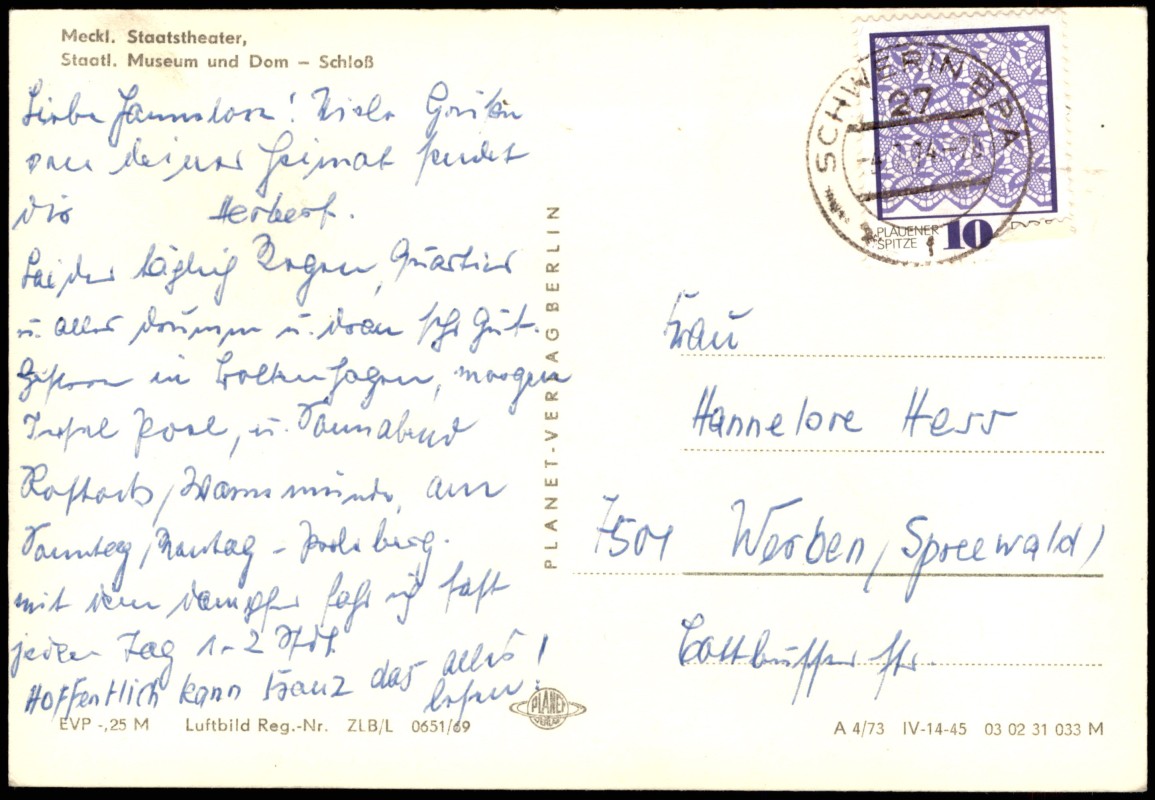 Meckl. Staatstheater,
Staatl. Museum und Dom – Schloß
Liebe Hannelore! Viele Grüße
von deiner Heimat sendet
dir Herbert.
Leider täglich Regen, Quartier
u. alles drumm u. dran sehr gut.
Gestern in Boltenhagen, morgen
Insel Poel, u. Sonnabend
Rostock, Warnemünde, am
Sonntag, Montag –
mit dem Dampfer fahr ich fast
jeden Tag 1-2 Std.
Hoffentlich kann Franz das alles
lesen!
EVP -,25 M Luftbild Reg.-Nr. ZLB/L 0651/69
PLANET-VERLAG BERLIN
PLANET
SCHWERIN BPA
27
PLAUENER
SPITZE 10
Frau
Hannelore Herr
7501 Werben, (Spreewald)
Cottbusser Str.
A 4/73 IV-14-45 03 02 31 033 M